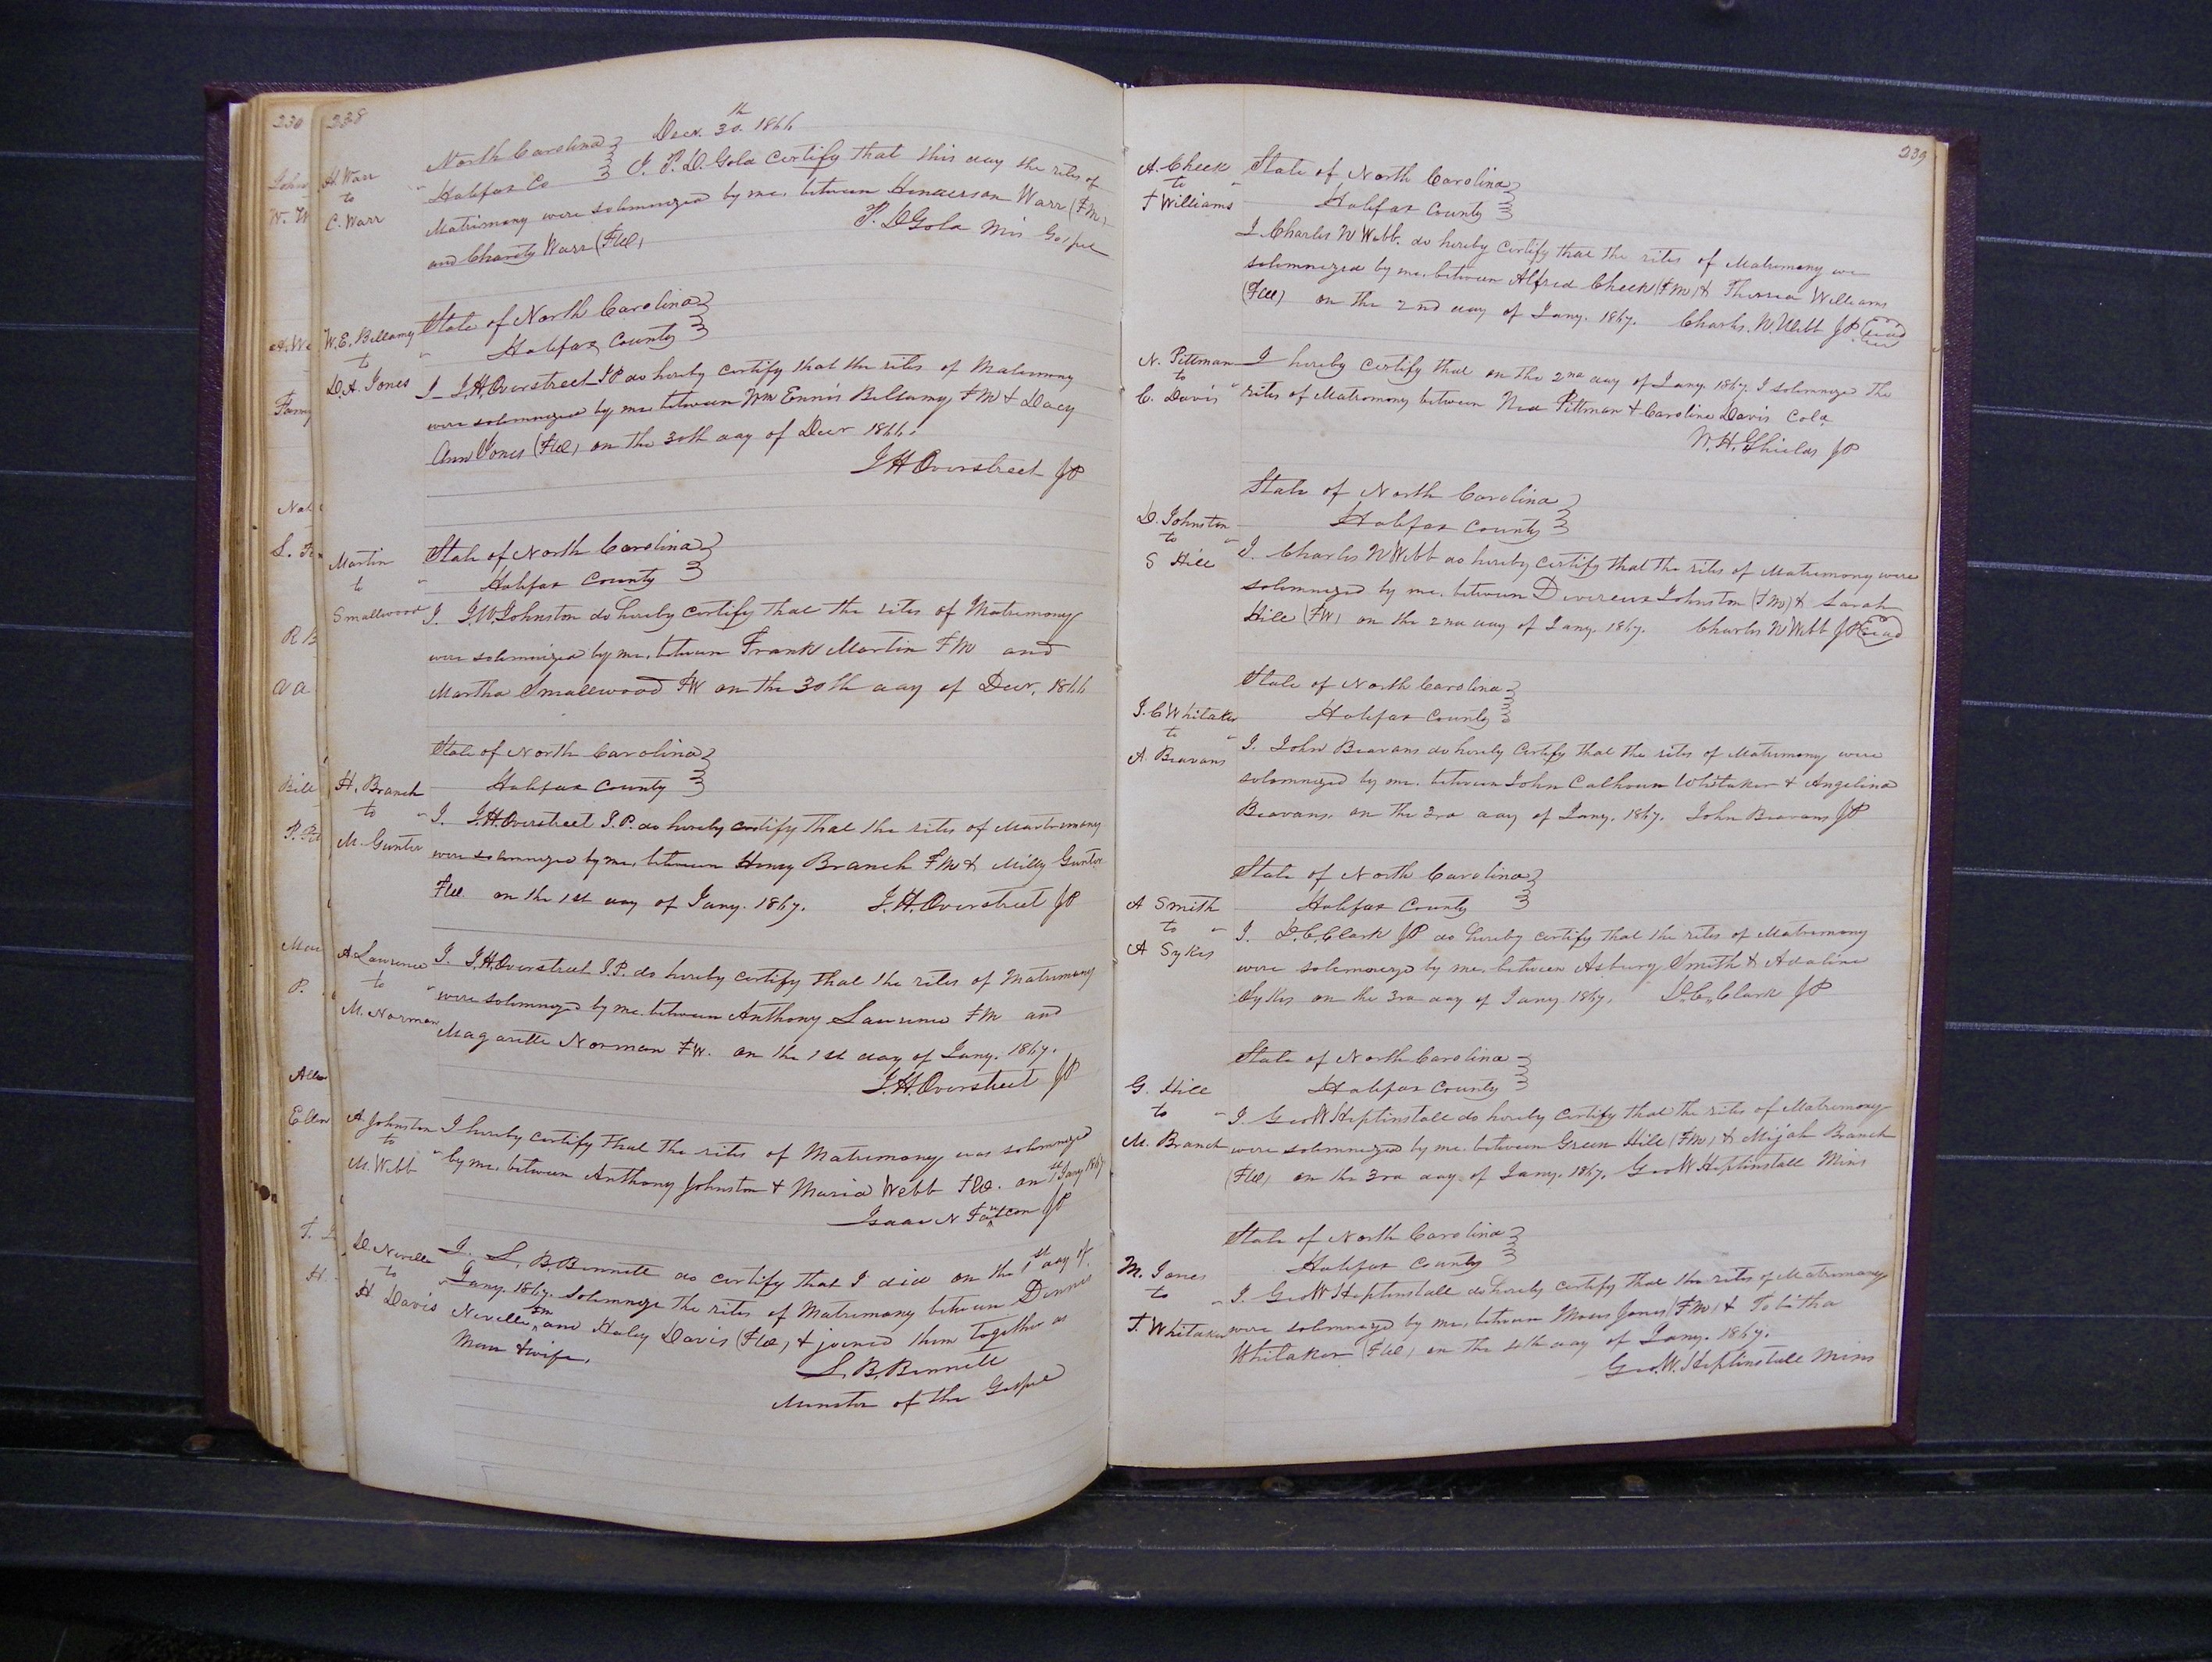 238
North Carolina Decr. 30th. 1866
Halifax Co I. P. D. Gold certify that this day the rites of
Matimony were solemnized by me. between Henderson Warr (FM)
and Charity Warr (FW)
P. D Gold Min Gospel
H. Warr
to
C. Warr
State of North Carolina
Halifax County
W. E. Bellamy
to
D. A. Jones
I J. H. Overstreet JP do hereby certify that the rites of Matrimony
were solemnized by me between Wm Ennis Bellamy FM & Dacy
Ann Jones (FW) on the 30th day of Decr 1866.
J H Overstreet JP
State of North Carolina
Halifax County
Martin
to
Smallwood
I. J. W. Johnston do hereby certify that the rites of Matrimony
were solemnized by me. between Frank Martin FM and
Martha Smallwood FW on the 30th day of Decr. 1866
State of North Carolina
Halifax County
H. Branch
to
M. Gunter
I. J. H. Overstreet J. P. do hereby certify that the rites of Matrimony
were solemnized by me, between Henry Branch FM & Milly Gunter
FW. on the 1st day of Jany. 1867. J. H. Overstreet JP
A Lawrence
to
M. Norman
I. J. H. Overstreet J. P. do hereby certify that the rites of Matrimony
were solemnized by me. between Anthony Lawrence FM and
Magarette Norman FW. on the 1st day of Jany. 1867.
J. H. Overstreet JP
A Johnston
to
M. Webb
I hereby certify that the rites of Matrimony was solemnized
by me. between Anthony Johnston & Maria Webb FW. on 1st Jany 1867
Isaac N Faulcon JP
D. Neville
to
H Davis
I. L. B. Bennett do certify that I did on the 1st day of.
Jany. 1867. solemnize the rites of Matrimony between Dennis
Neville FM and Haley Davis (FW) & joined them together as
Man & wife.
L. B. Bennett
Minster of the Gospel
239
A. Cheek
to
T Williams
State of North Carolina
Halifax County
I Charles N Webb. do hereby certify that the rites of Matrimony we
solemnized by me. between Alfred Cheek (FM) & Williams
(FW) on the 2nd day of Jany. 1867. Charles. N. Webb JP. Seal
N. Pittman
to
C. Davis
I hereby certify that on the 2nd day of Jany. 1867. I solemnize the
rites of Matromony between Ned Pittman & Caroline Davis Cold
W. H. Shields JP
State of North Carolina
Halifax County
D. Johnston
to
S Hill
I. Charles N Webb do hereby certify that the rites of Matrimony were
solemnized by me. between Devereux Johnston (FM) & Sarah
Hill (FW) on the 2nd day of Jany. 1867. Charles N Webb JP Seal
State of North Carolina
Halifax County
J. C Whitaker
to
A. Beavans
I. John Beavans do hereby certify that the rites of Matrimony were
solemnized by me. between John Calhoun Whitaker & Angelina
Beavans. on the 3rd day of Jany. 1867. John Beavans JP
State of North Carolina
Halifax County
A Smith
to
A Sykes
I. D. C. Clark JP do hereby certify that the rites of Matrimony
were solemnized by me. between Asbury Smith & Adaline
Sykes on the 3rd day of Jany 1867. D. C. Clark JP
State of North Carolina
Halifax County
G. Hill
to
M. Branch
I. Geo W Heptinstall do hereby certify that the rites of Matrimony
were solemnized by me. between Green Hill (FM) & Mijah Branch
(FW) on the 3rd day of Jany. 1867. Geo W Heptinstall Mins
State of North Carolina
Halifax County
M. Jones
to
T. Whitaker
I. Geo W Heptinstall do hereby certify that the rites of Matrimony
were solemnized by me, between Moses Jones (FM) & Tobitha
Whitaker (FW) on the 4th day of Jany. 1867.
Geo. W. Heptinstall Mins